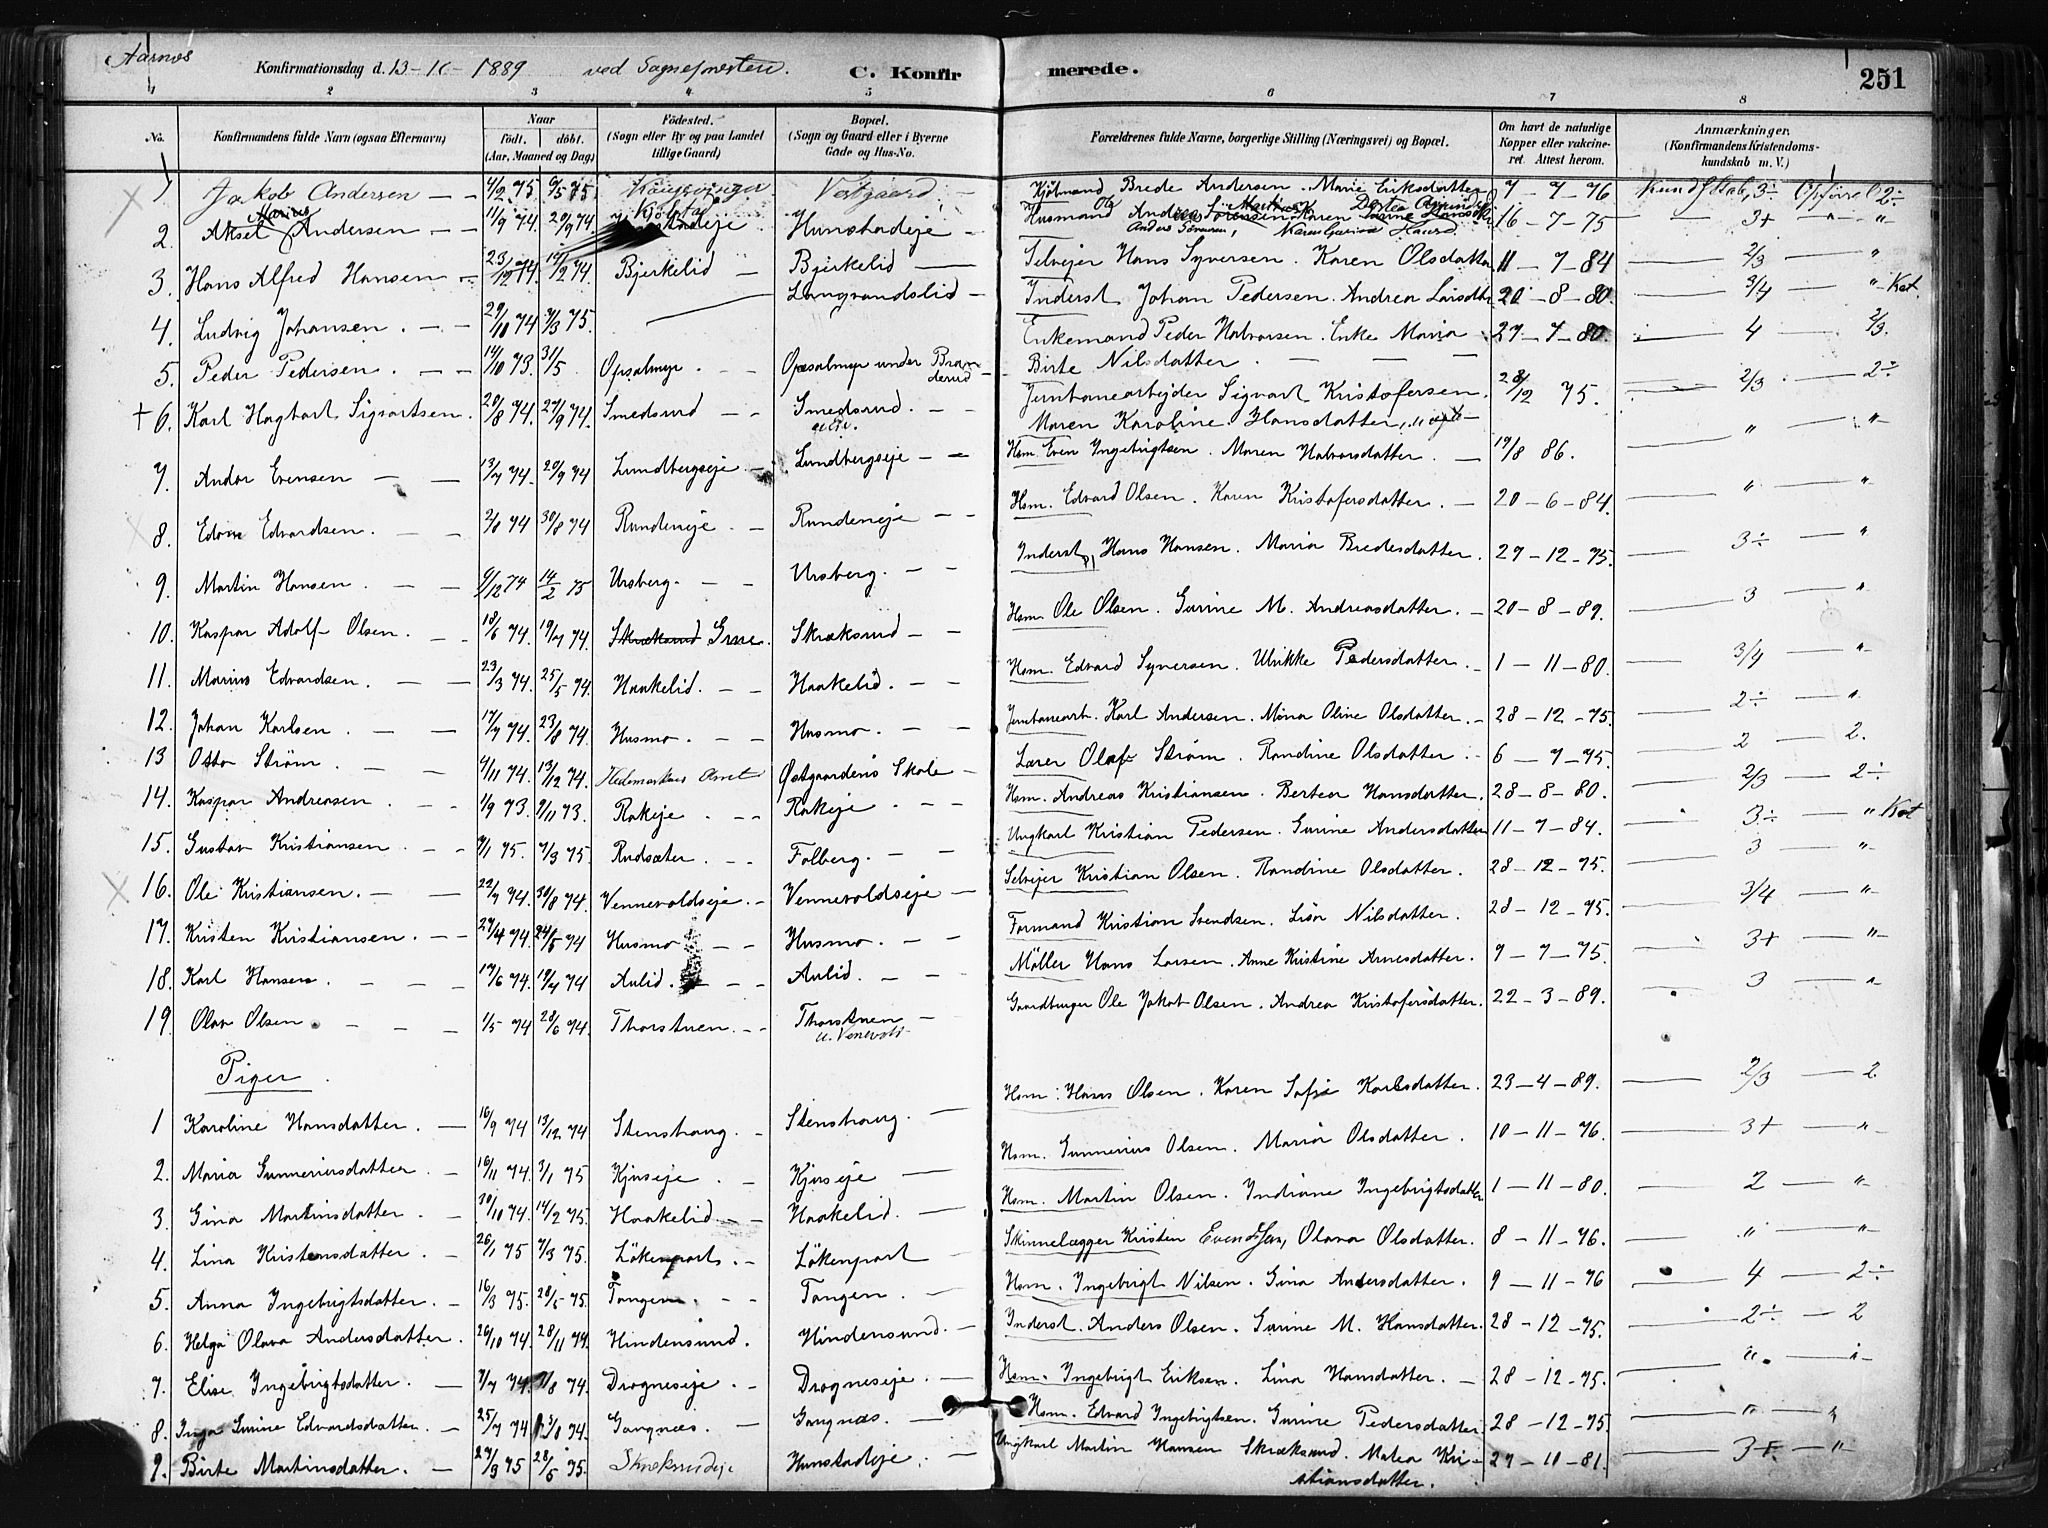 Aarnes
Konfirmationsdag d. 1889 ved C. Konfirmerede. 251
1 2 3 4 5 6 7 8
No. Konfirmandens fulde Navn (ogsaa Efternavn) Naar født. døbt. (Aar, Maaned og Dag) Fødested. (Sogn eller By og paa Landet tillige Gaard) Bopæl. (Sogn og Gaard eller i Byerne Gade og Hus-No. Forældrenes fulde Navne, borgerlige Stilling (Næringsvei) og Bopæl. Om havt de naturlige Kopper eller vakcineret. Attest herom. Anmærkninger. (Konfirmandens Kristendomskundskab m. V.)
1 Jakob Andersen 4/2 75 9/5 75 Kongsvinger Vestgaard Kjøbmand Brede Andersen. Marie Eriksdatter 7-7-76 Kundskab 3÷ Opførsel 2÷
2. Aksel Marius Andersen 11/9 74 20/9 74 Hunstadeje Husmand 16-7-75 3+ "
3. Hans Alfred Hansen 74 74 Bjerkelid Bjerkelid Selvejer Hans Syversen. Karen Olsdatter 11-7-84 2/3 "
4. Ludvig Johansen 29/10 74 7/3 75. Langrandslid Inderst Johan Pedersen. Andrea Larsdtr 20-8-80. 3/4 " Kat.
5. Peder Pedersen 14/10 73. 31/5 Opsalmyr Opsalmyr under Branderud Enkemand Peder Halvorsen. Enke Maria Birte Nilsdatter 27-7-80. 4 2/3.
+ 6. Karl Hagbart Sigvartsen. 20/8 74. 27/9 74. Smedsrud Smedsrud. Jernbanearbejder Sigvart Kristofersen. Maren Karoline Hansdatter 28/12 75. 2/3 2÷
7. Andor Evensen 13/7 74. 20/9 74 Lundbergseje Lundbergseje Hsm. Even Ingebrigtsen. Maren Halvorsdatter. 19/8 86. " "
8. Edvin Edvardsen. 2/8 74 30/8 74 Rundeneje Rundeneje Hsm. Edvard Olsen. Karen Kristofersdatter. 20-6-84. " "
9. Martin Hansen 9/12 74 14/2 75 Ursberg. Ursberg. Inderst Hans Hansen. Maria Bredesdatter. 27-12-75. 3÷ "
10. Kaspar Adolf Olsen. 18/6 74. 19/7 74. Skræksrud Grue. Skræksrud Hsm. Ole Olsen. Gurine M. Andreasdatter. 20-8-89. 3 "
11. Marius Edvardsen. 23/3 74. 25/5 74. Haakelid. Haakelid. Hsm. Edvard Syversen. Ulrikke Pedersdatter. 1-11-80. 3/4 "
12. Johan Karlsen. 17/7 74. 23/8 74. Husmo. Husmo. Jernbanearb. Karl Andersen. Mina Oline Olsdatter. 28-12-75. 2÷ "
13 Otto Strøm 4/11 74. 13/12 74. Hedemarkens Amt Østgaardens Skole Lærer Olaf Strøm. Randine Olsdatter. 6-7-75. 2 2.
14. Kaspar Andreasen. 1/9 73 9/11 73. Rakeje Rakeje Hsm. Andreas Kristiansen. Bertea Hansdatter. 28-8-80. 2/3 2÷
15. Gustav Kristiansen 7/1 75. 7/3 75. Rudsæter. Folberg. Ungkarl Kristian Pedersen. Gurine Andersdatter 11-7-84. 3÷ " Kat
16. Ole Kristiansen. 22/7 74. 30/8 74. Vennevoldseje. Vennevoldseje Selvejer Kristian Olsen. Randine Olsdatter. 28-12-75. 3 "
17. Kristen Kristiansen. 27/4 74. 24/5 74 Husmo Husmo. Formand Kristian Svendsen. Lisa Nilsdatter. 28-12-75. 3/4 "
18. Karl Hansen. 17/6 74. 19/7 74 Aulid. Aulid. Møller Hans Larsen. Anne Kristine Arnesdatter. 9-7-75. 3+ "
19. Olav Olsen 1/5 74 28/6 74. Thorstuen. Thorstuen u. Venevold Gaardbruger Ole Jakob Olsen. Andrea Kristofersdatter. 22-3-89. 3 "
Piger.
1 Karoline Hansdatter. 16/9 74 13/12 74 Stenshaug. Stenshaug. Hsm: Hans Olsen. Karen Sofie Karlsdatter. 23-4-89. 2/3 2
2. Maria Gunneriusdatter. 16/11 74. 3/1 75 Kjuseje. Kjuseje Hsm. Gunnerius Olsen. Maria Olsdatter. 10-11-76. 3+ "
3. Gina Martinsdatter. 20/10 74. 14/2 75. Haakelid. Haakelid. Hsm. Martin Olsen. Indiane Ingebrigtsdatter 1-11-80. 2 "
4. Lina Kristensdatter. 26/1 75 7/3 75. Løkenport. Løkenport Skinnelægger Kristen Evensen, Olava Olsdatter. 8-11-76. " "
5. Anna Ingebrigtsdatter. 16/3 75. 28/5 75. Tangen. Tangen. Hsm. Ingebrigt Nilsen. Gina Andersdatter. 9-11-76 4 2÷
6. Helga Olava Andersdatter. 26/10 74. 28/11 74. Hindensrud. Hindensrud. Inderst. Anders Olsen. Gurine M. Hansdatter. 28-12-75. 2÷ 2
7. Elise Ingebrigtsdatter. 7/7 74. 9/8 74. Drogneseje. Drogneseje. Hsm. Ingebrigt Eriksen. Lina Hansdatter. 28-12-75. " "
8. Inga Gurine Edvardsdatter. 25/7 74 74. Gangnæs. Gangnæs. Hsm. Edvard Ingebrigtsen. Gurine Pedersdatter 28-12-75 " "
9. Birte Martinsdatter. 27/3 75 28/5 75. Skræksrudeje Hunstadeje. Ungkarl Martin Hansen Skræksrud. Matea Kristiansdatter. 27-11-81. 3+. "